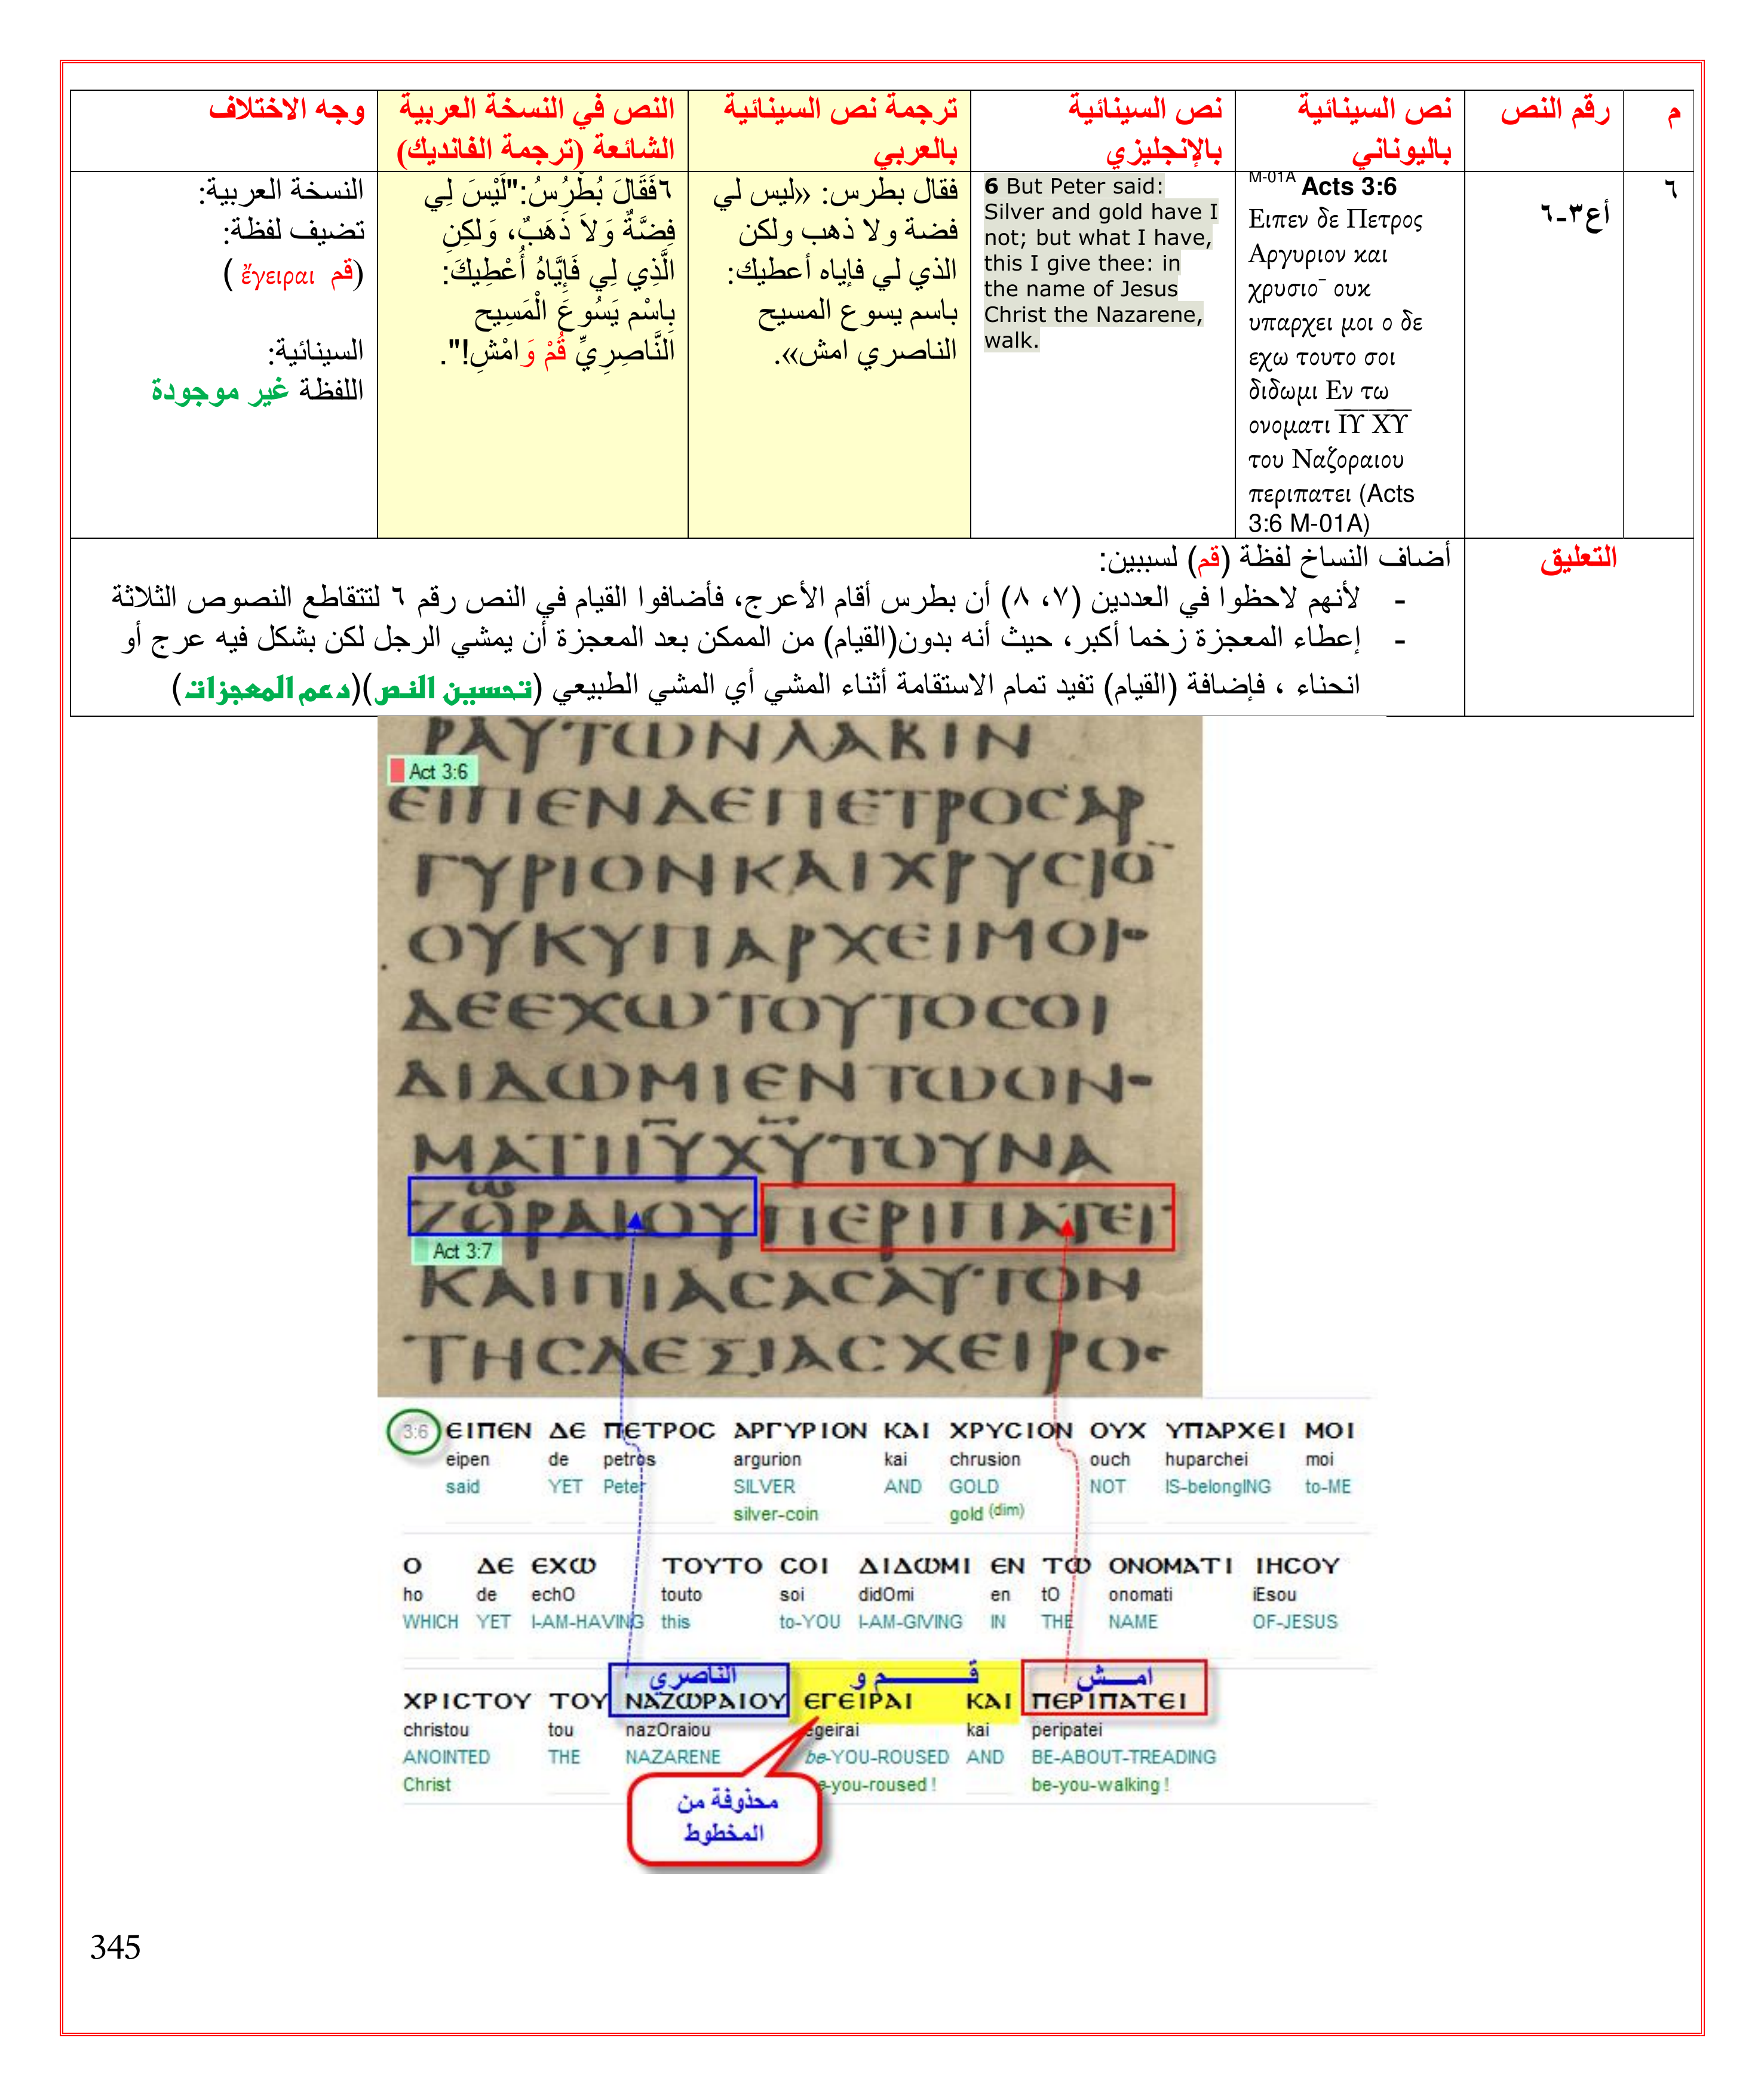 م
رقم النص
نص السينائية
باليوناني
نص السينائية
بالإنجليزي
ترجمة نص السينائية
بالعربي
النص في النسخة العربية
الشائعة (ترجمة الفانديك)
وجه الاختلاف
٦
أع٣-٦
M-01A Acts 3:6
Ειπεν δε Πετρος
Αργυριον και
χρυσιο¯ ουκ
υπαρχει μοι ο δε
εχω τουτο σοι
διδωμι Εν τω
ονοματι ΙΥ ΧΥ
του Ναζοραιου
περιπατει (Acts
3:6 M-01A)
6 But Peter said:
Silver and gold have I
not; but what I have,
this I give thee: in
the name of Jesus
Christ the Nazarene,
walk.
فقال بطرس: «ليس لي
فضة ولا ذهب ولكن
الذي لي فإياه أعطيك:
باسم يسوع المسيح
الناصري امش».
٦فَقَالَ بُطْرُسُ:"لَيْسَ لِي
فِضَّةٌ وَلاَ ذَهَبٌ، وَلكِنِ
الَّذِي لِي فَإِيَّاهُ أُعْطِيكَ:
بِاسْمِ يَسُوعَ الْمَسِيحِ
النَّاصِرِيِّ قُمْ وَامْشِ!".
النسخة العربية:
تضيف لفظة:
(قم ἔγειραι )
السينائية:
اللفظة غير موجودة
التعليق
أضاف النساخ لفظة (قم) لسببين:
- لأنهم لاحظوا في العددين (٧، ٨) أن بطرس أقام الأعرج، فأضافوا القيام في النص رقم ٦ لتتقاطع النصوص الثلاثة
- إعطاء المعجزة زخما أكبر، حيث أنه بدون(القيام) من الممكن بعد المعجزة أن يمشي الرجل لكن بشكل فيه عرج أو
انحناء ، فإضافة (القيام) تفيد تمام الاستقامة أثناء المشي أي المشي الطبيعي (تحسين النص)(دعم المعجزات)
ΡΑΥΤΩΝΛΑΒΙΝ
Act 3:6
ΕΙΠΕΝΔΕΠΕΤΡΟϹΑΡ
ΓΥΡΙΟΝΚΑΙΧΡΥϹΙΟ¯
ΟΥΚΥΠΑΡΧΕΙΜΟΙΟ
ΔΕΕΧΩΤΟΥΤΟϹΟΙ
ΔΙΔΩΜΙΕΝΤΩΟΝΟ
ΜΑΤΙΙΥΧΥΤΟΥΝΑ
ΖΟΡΑΙΟΥΠΕΡΙΠΑΤΕΙ
Act 3:7
ΚΑΙΠΙΑϹΑϹΑΥΤΟΝ
ΤΗϹΔΕΞΙΑϹΧΕΙΡΟϹ
3:6 ΕΙΠΕΝ ΔΕ ΠΕΤΡΟϹ ΑΡΓΥΡΙΟΝ ΚΑΙ ΧΡΥϹΙΟΝ ΟΥΧ ΥΠΑΡΧΕΙ ΜΟΙ
eipen de petros argurion kai chrusion ouch huparchei moi
said YET Peter SILVER AND GOLD NOT IS-belongING to-ME
silver-coin gold (dim)
Ο ΔΕ ΕΧΩ ΤΟΥΤΟ ϹΟΙ ΔΙΔΩΜΙ ΕΝ ΤΩ ΟΝΟΜΑΤΙ ΙΗϹΟΥ
ho de echO touto soi didOmi en tO onomati iEsou
WHICH YET I-AM-HAVING this to-YOU I-AM-GIVING IN THE NAME OF-JESUS
الناصري قـــــم و امــش
ΧΡΙϹΤΟΥ ΤΟΥ ΝΑΖΩΡΑΙΟΥ ΕΓΕΙΡΑΙ ΚΑΙ ΠΕΡΙΠΑΤΕΙ
christou tou nazOraiou egeirai kai peripatei
ANOINTED THE NAZARENE be-YOU-ROUSED AND BE-ABOUT-TREADING
Christ be-you-roused ! be-you-walking !
محذوفة من
المخطوط
345